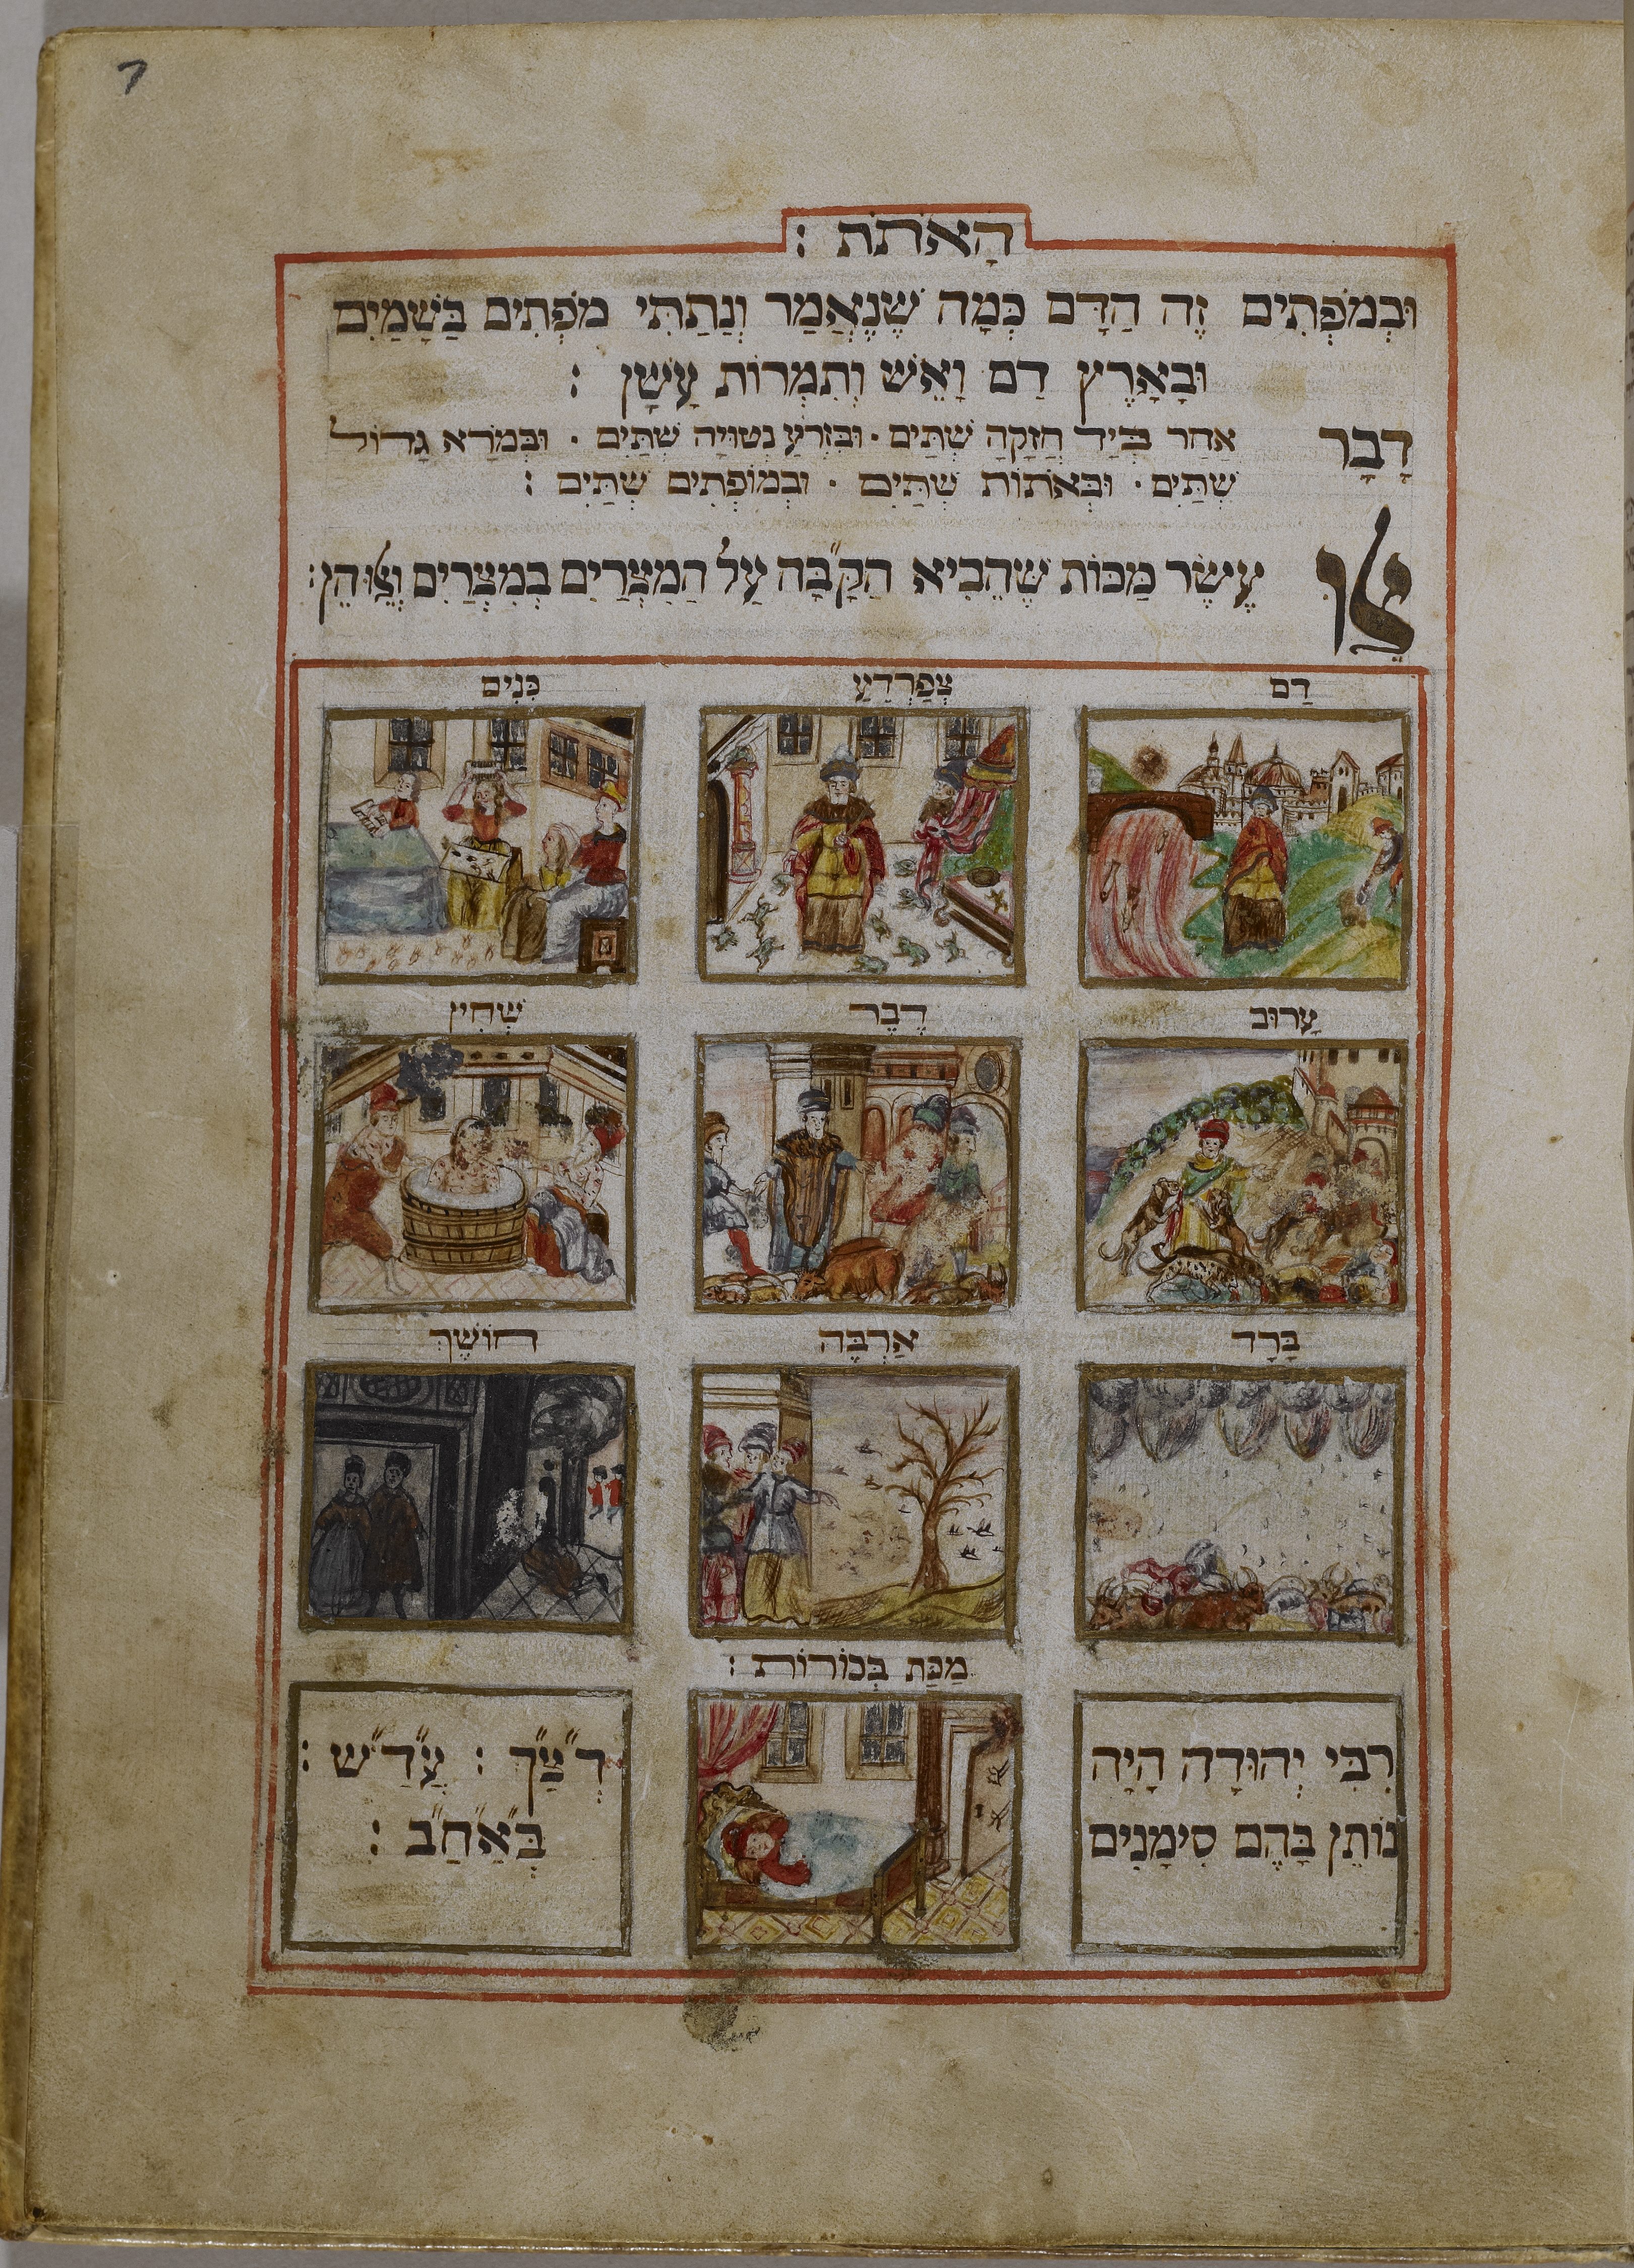 7
הָאֹתֹת :
וּבְמֹפְתִים זֶה הַדָּם כְּמָה שֶׁנֶּאֱמַר וְנָתַתִּי מֹפְתִים בַּשָּׁמַיִם
וּבָאָרֶץ דַּם וָאֵשׁ וְתִמְרוֹת עָשָׁן :
דָּבָר אַחֵר בְּיַד חֲזָקָה שְׁתַּיִם . וּבִזְרֹעַ נְטוּיָה שְׁתַּיִם . וּבְמֹרָא גָּדוֹל
שְׁתַּיִם . וּבְאֹתוֹת שְׁתַּיִם . וּבְמוֹפְתִים שְׁתַּיִם :
אֵלוּ עֶשֶׂר מַכּוֹת שֶׁהֵבִיא הַקָּ״בָּה עַל הַמִּצְרַיִם בְּמִצְרַיִם וְאֵלוּ הֵן :
דָם צְפַרְדֵעַ כִּנִים
עָרוֹב דֶבֶר שְׁחִין
בָּרָד אַרְבֶּה חוֹשֶׁךְ
מַכַּת בְּכוֹרוֹת :
רִבִּי יְהוּדָה הָיָה
נוֹתֵן בָּהֶם סִימָנִים
דְ״צַ״ךְ : עֲ״דַ״שׁ :
בְּ״אַ״חַ״ב :